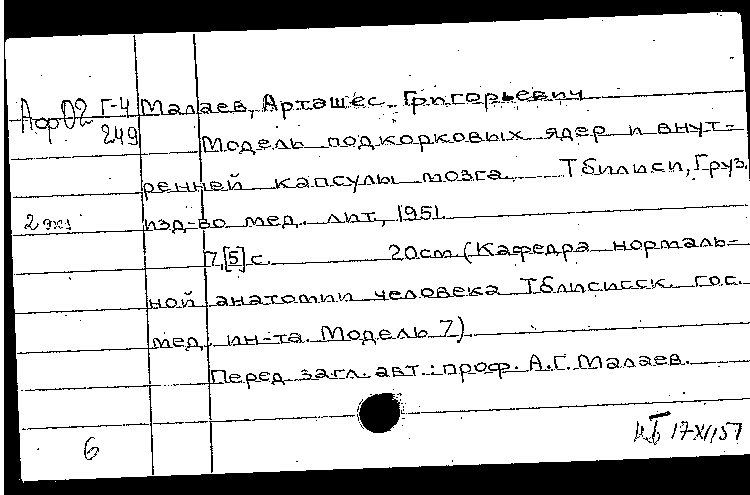 Аф02 Г-4 Малаев, Арташес Григорьевич
249
Модель подкорковых ядер и внут-
ренней капсулы мозга. Тбилиси, Груз.
2 экз изд-во мед. лит, 1951.
7,[5] с. 20см. (Кафедра нормаль-
ной анатомии человека Тблисисск. гос.
мед. ин-та. Модель 7).
Перед загл. авт.: проф. А.Г. Малаев.
6
17 XI 157